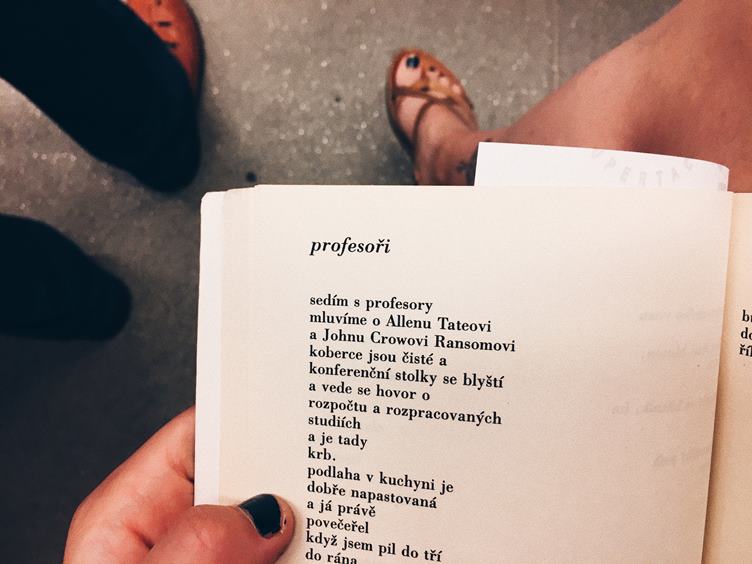 profesoři
sedím s profesory
mluvíme o Allenu Tateovi
a Johnu Crowovi Ransomovi
koberce jsou čisté a
konferenční stolky se blyští
a vede se hovor o
rozpočtu a rozpracovaných
studiích
a je tady
krb.
podlaha v kuchyni je
dobře napastovaná
a já právě
povečeřel
když jsem pil do tří
do rána